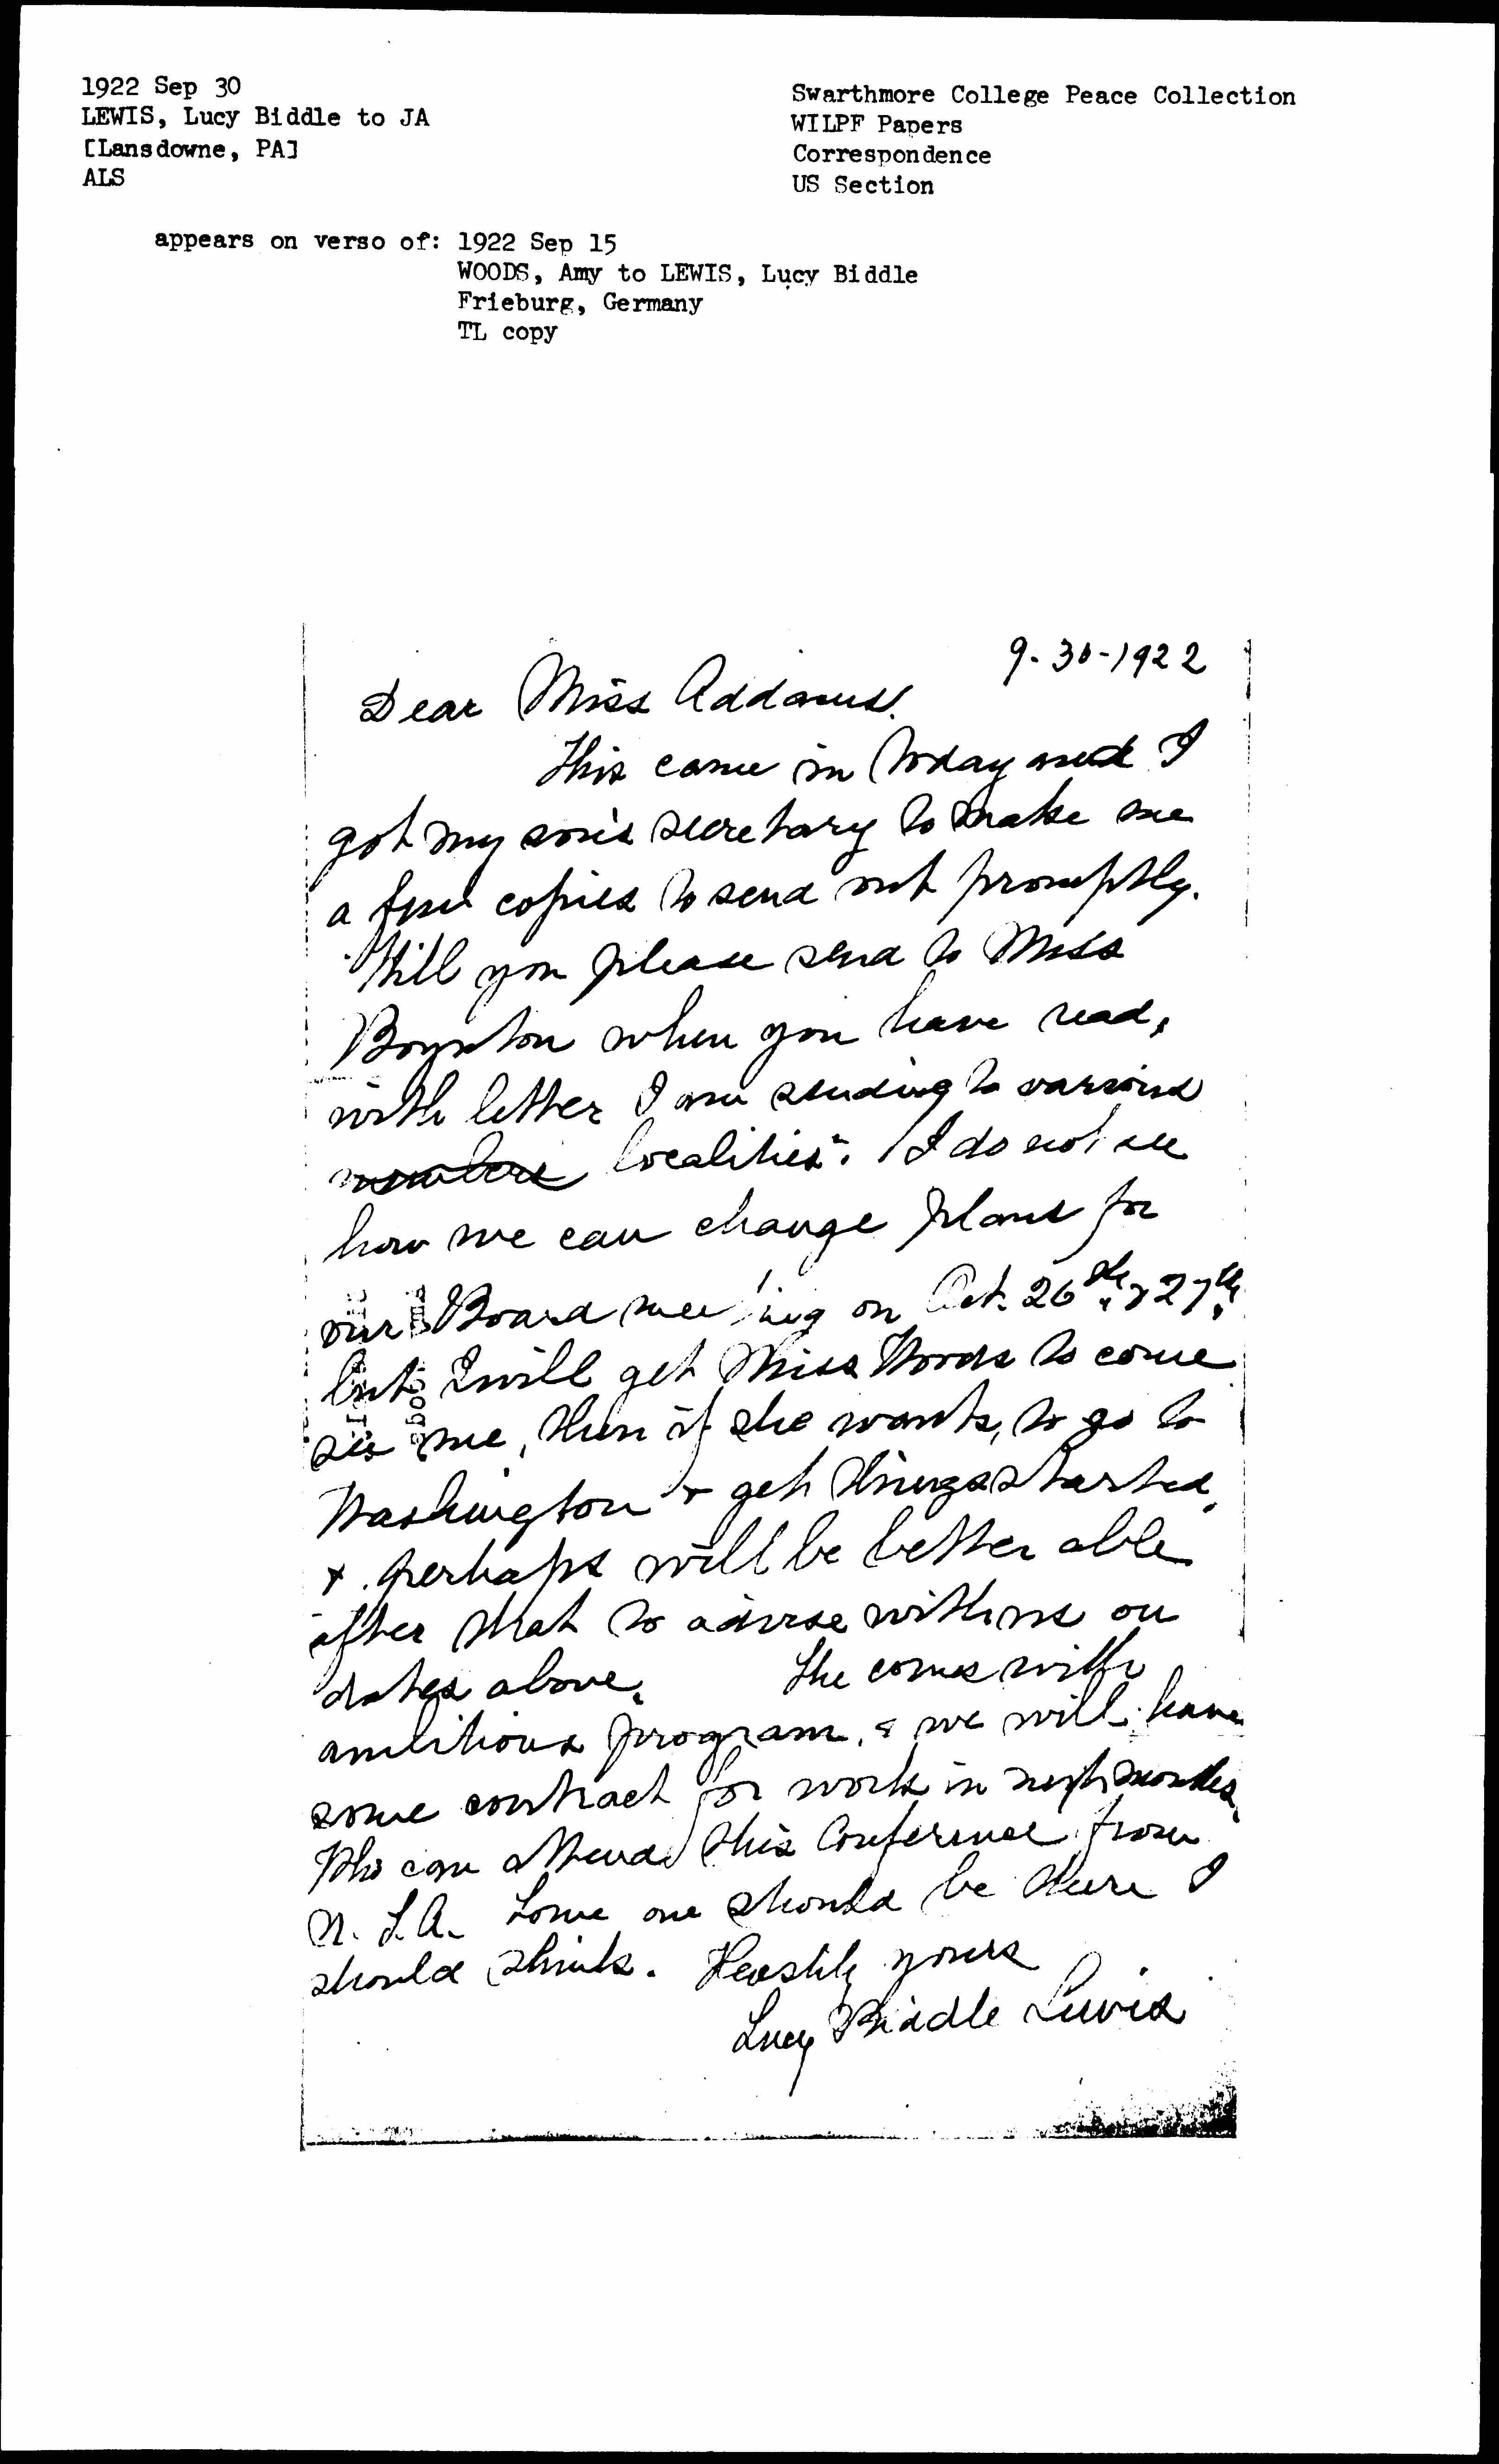 1922 Sep 30
LEWIS, Lucy Biddle to JA
[Lansdowne, PA]
ALS
Swarthmore College Peace Collection
WILPF Papers
Correspondence
US Section
appears on verso of: 1922 Sep 15
WOODS, Amy to LEWIS, Lucy Biddle
Frieburg, Germany
TL copy
9-30-1922
Dear Miss Addams.
This came in today and I
got my son's secretary to make me
a few copies to send out promptly.
Will you please send to Miss
Boynton when you have read,
with letter I am sending to various
members localities. I do not see
how we can change plans for
our Board meeting on Oct. 26th & 27th,
but I will get Miss Woods to come
see me, then if she wants, to go to
Washington & get things started,
& perhaps will be better able
after that to advise with us on
dates above. She comes with
ambitious program, & we will have
some contract for work in next months.
Who can attend this Conference from
U.S.A. Some one should be there I
should think. Heartily yours
Lucy Biddle Lewis